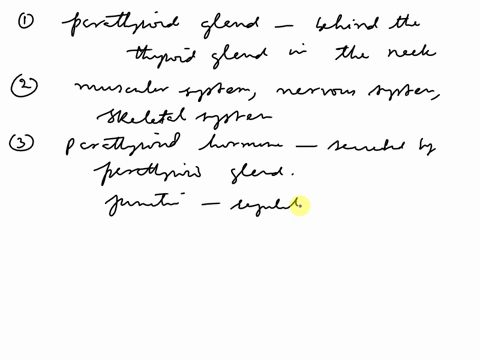 ① parathyroid gland — behind the
thyroid gland in the neck
② muscular system, nervous system,
skeletal system
③ parathyroid hormone — secreted by
parathyroid gland.
function — regulat